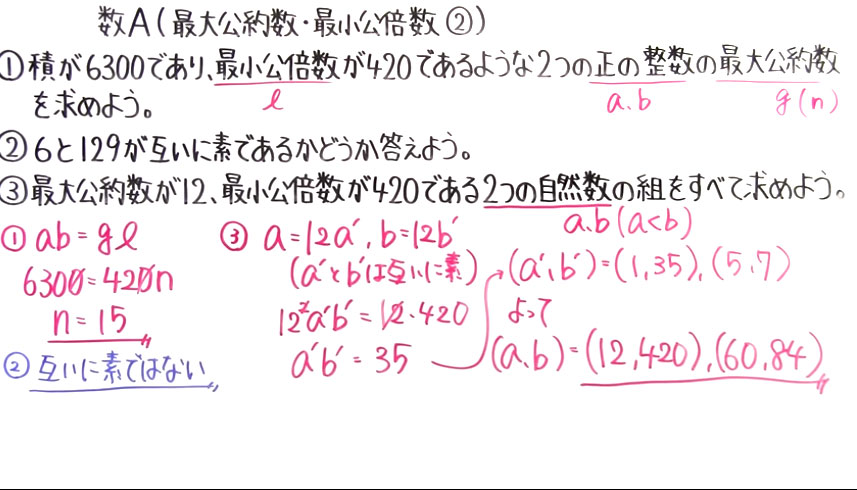 数A(最大公約数・最小公倍数②)
①積が6300であり、最小公倍数が420であるような2つの正の整数の最大公約数
を求めよう。 l a、b g(n)
②6と129が互いに素であるかどうか答えよう。
③最大公約数が12、最小公倍数が420である2つの自然数の組をすべて求めよう。
a.b(a<b)
① ab=gl
6300=420n
n=15
② 互いに素ではない
③ a=12a′, b=12b′
(a′とb′は互いに素)
12²a′b′=12・420
a′b′=35
(a′,b′)=(1,35),(5,7)
よって
(a,b)=(12,420),(60,84)